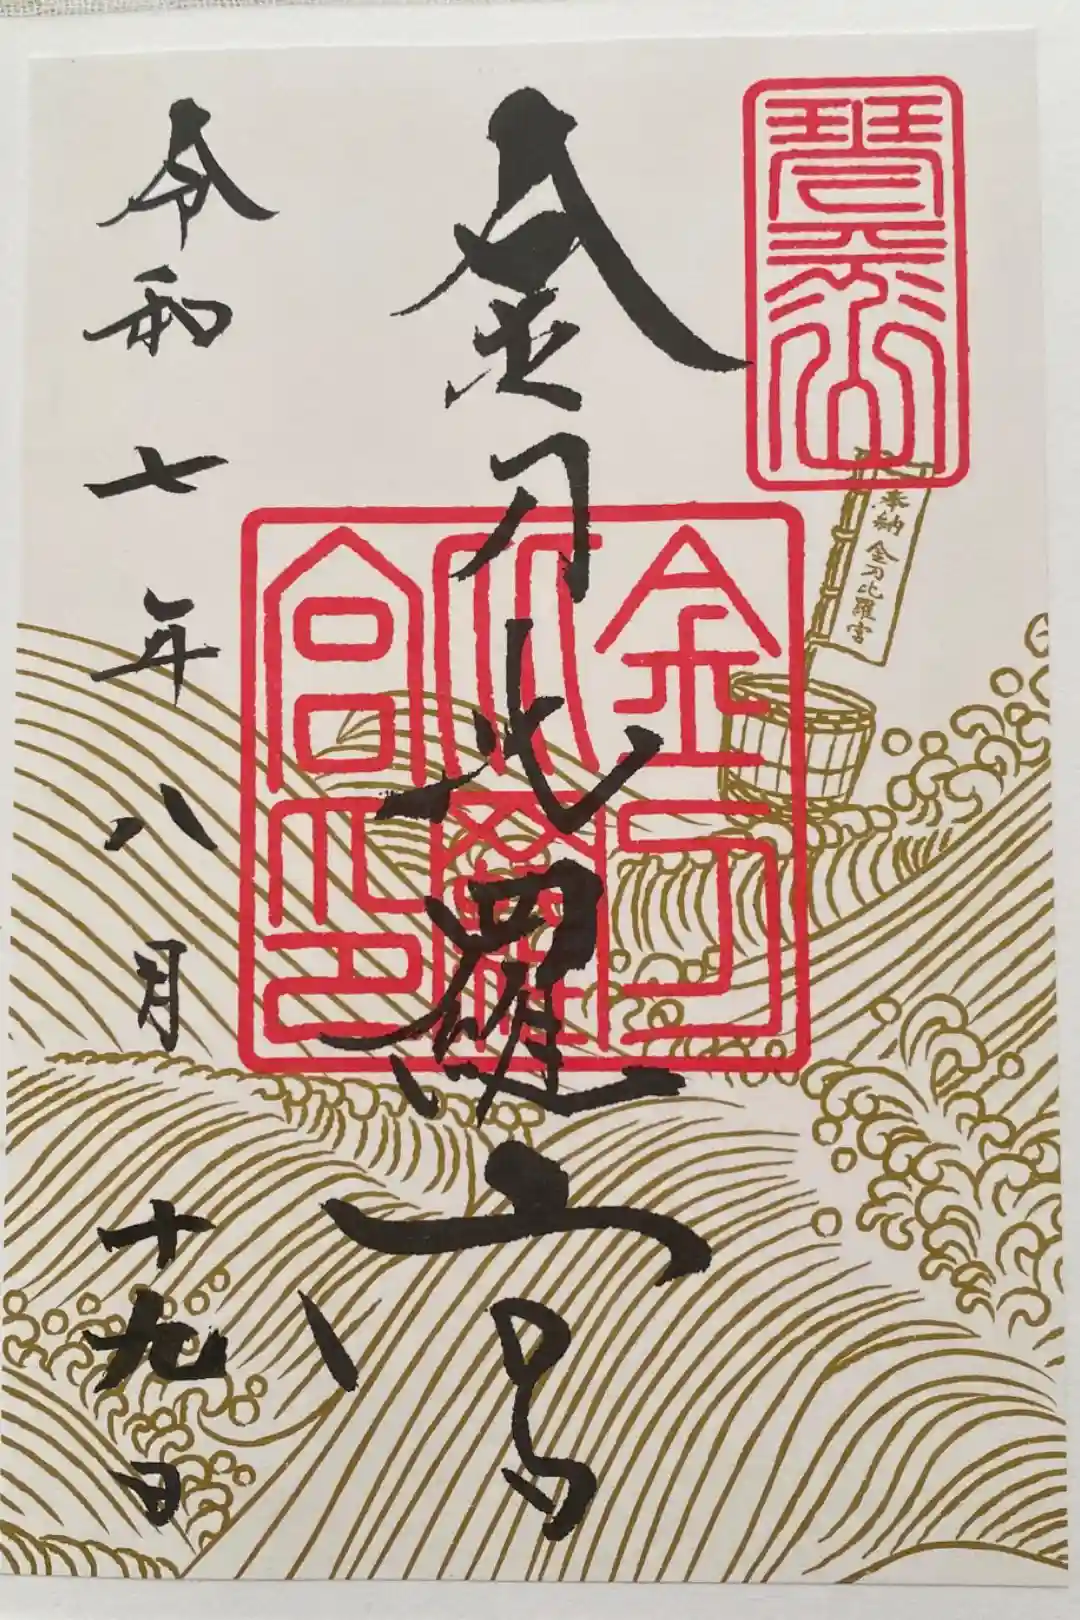 琴平山
奉納 金刀比羅宮
金刀比羅宮
金刀比羅宮印
令和七年八月十九日